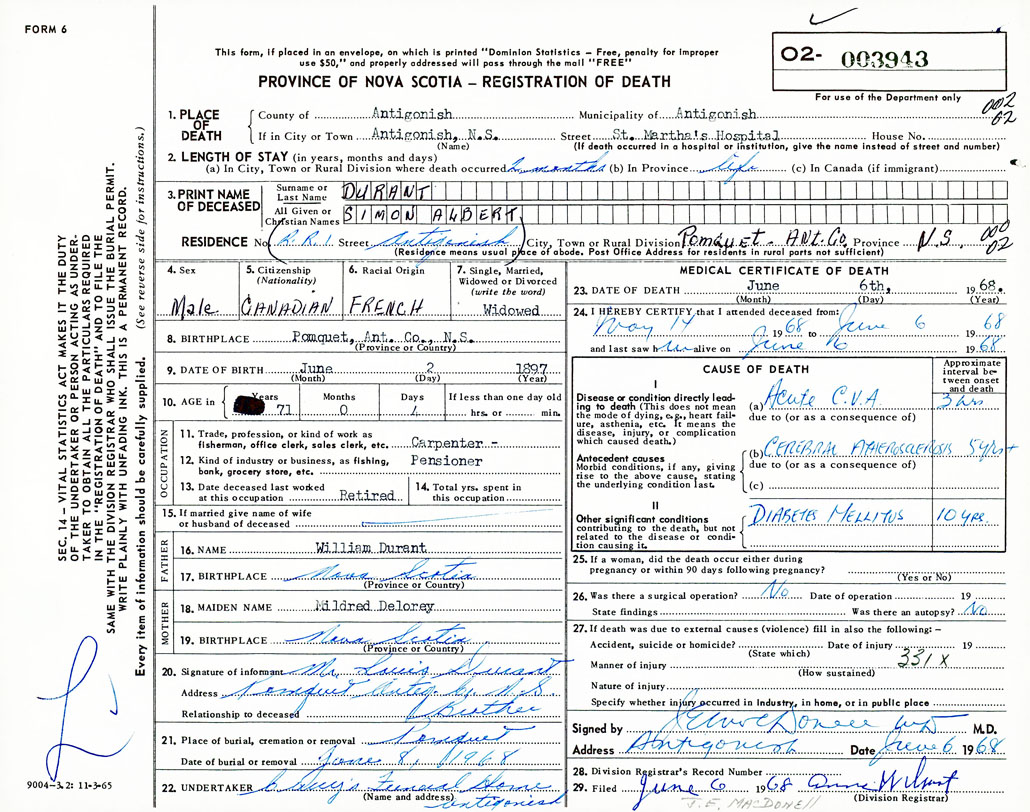 FORM 6
This form, if placed in an envelope, on which is printed "Dominion Statistics – Free, penalty for improper
use $50," and properly addressed will pass through the mail "FREE"
PROVINCE OF NOVA SCOTIA – REGISTRATION OF DEATH
02- 003943
For use of the Department only
002
02
1. PLACE OF DEATH
County of Antigonish Municipality of Antigonish
If in City or Town Antigonish, N.S. Street St. Martha's Hospital House No.
(Name) (If death occurred in a hospital or institution, give the name instead of street and number)
2. LENGTH OF STAY (in years, months and days)
(a) In City, Town or Rural District where death occurred 2 months (b) In Province Life (c) In Canada (if immigrant)
3. PRINT NAME OF DECEASED
Surname or Last Name DURANT
All Given or Christian Names SIMON ALBERT
RESIDENCE No. R.R.1. Street Antigonish City, Town or Rural Division Pomquet - Ant. Co. Province N.S. 000
02
(Residence means usual place of abode. Post Office Address for residents in rural parts not sufficient)
4. Sex Male
5. Citizenship (Nationality) CANADIAN
6. Racial Origin FRENCH
7. Single, Married, Widowed or Divorced (write the word) Widowed
8. BIRTHPLACE Pomquet, Ant. Co., N.S.
(Province or Country)
9. DATE OF BIRTH June 2 1897
(Month) (Day) (Year)
10. AGE in Years 71 Months 0 Days 4 If less than one day old hrs. or min.
OCCUPATION
11. Trade, profession, or kind of work as fisherman, office clerk, sales clerk, etc. Carpenter -
12. Kind of industry or business, as fishing, bank, grocery store, etc. Pensioner
13. Date deceased last worked at this occupation Retired
14. Total yrs. spent in this occupation
15. If married give name of wife or husband of deceased
FATHER
16. NAME William Durant
17. BIRTHPLACE Nova Scotia
(Province or Country)
MOTHER
18. MAIDEN NAME Mildred Delorey
19. BIRTHPLACE Nova Scotia
(Province or Country)
20. Signature of informant Mr. Louis Durant
Address Pomquet Antig. Co. N.S.
Relationship to deceased Brother
21. Place of burial, cremation or removal Pomquet
Date of burial or removal June 8, 1968
22. UNDERTAKER Funeral Home
(Name and address) Antigonish
MEDICAL CERTIFICATE OF DEATH
23. DATE OF DEATH June 6th, 1968.
(Month) (Day) (Year)
24. I HEREBY CERTIFY that I attended deceased from:
May 14 1968 to June 6 1968
and last saw him alive on June 6 1968
CAUSE OF DEATH
Approximate interval between onset and death
I
Disease or condition directly leading to death (This does not mean the mode of dying, e.g., heart failure, asthenia, etc. It means the disease, injury, or complication which caused death.)
(a) Acute C.V.A. 3 hrs
due to (or as a consequence of)
Antecedent causes
Morbid conditions, if any, giving rise to the above cause, stating the underlying condition last.
(b) CEREBRAL ATHEROSCLEROSIS 5 yrs+
due to (or as a consequence of)
(c)
II
Other significant conditions contributing to the death, but not related to the disease or condition causing it.
DIABETES MELLITUS 10 yrs.
25. If a woman, did the death occur either during pregnancy or within 90 days following pregnancy?
(Yes or No)
26. Was there a surgical operation? No Date of operation 19
State findings Was there an autopsy? No
27. If death was due to external causes (violence) fill in also the following: –
Accident, suicide or homicide? Date of injury 19
(State which) 331 X
Manner of injury
(How sustained)
Nature of injury
Specify whether injury occurred in industry, in home, or in public place
Signed by M.D.
Address Antigonish Date June 6 1968
28. Division Registrar's Record Number
29. Filed June 6 1968
(Division Registrar)
J.E. MACDONELL
SEC. 14 – VITAL STATISTICS ACT MAKES IT THE DUTY
OF THE UNDERTAKER OR PERSON ACTING AS UNDERTAKER TO OBTAIN ALL THE PARTICULARS REQUIRED
IN THE "REGISTRATION OF DEATH" AND TO FILE THE
SAME WITH THE DIVISION REGISTRAR WHO SHALL ISSUE THE BURIAL PERMIT.
WRITE PLAINLY WITH UNFADING INK. THIS IS A PERMANENT RECORD.
Every item of information should be carefully supplied. (See reverse side for instructions.)
9004-3.2: 11-3-65